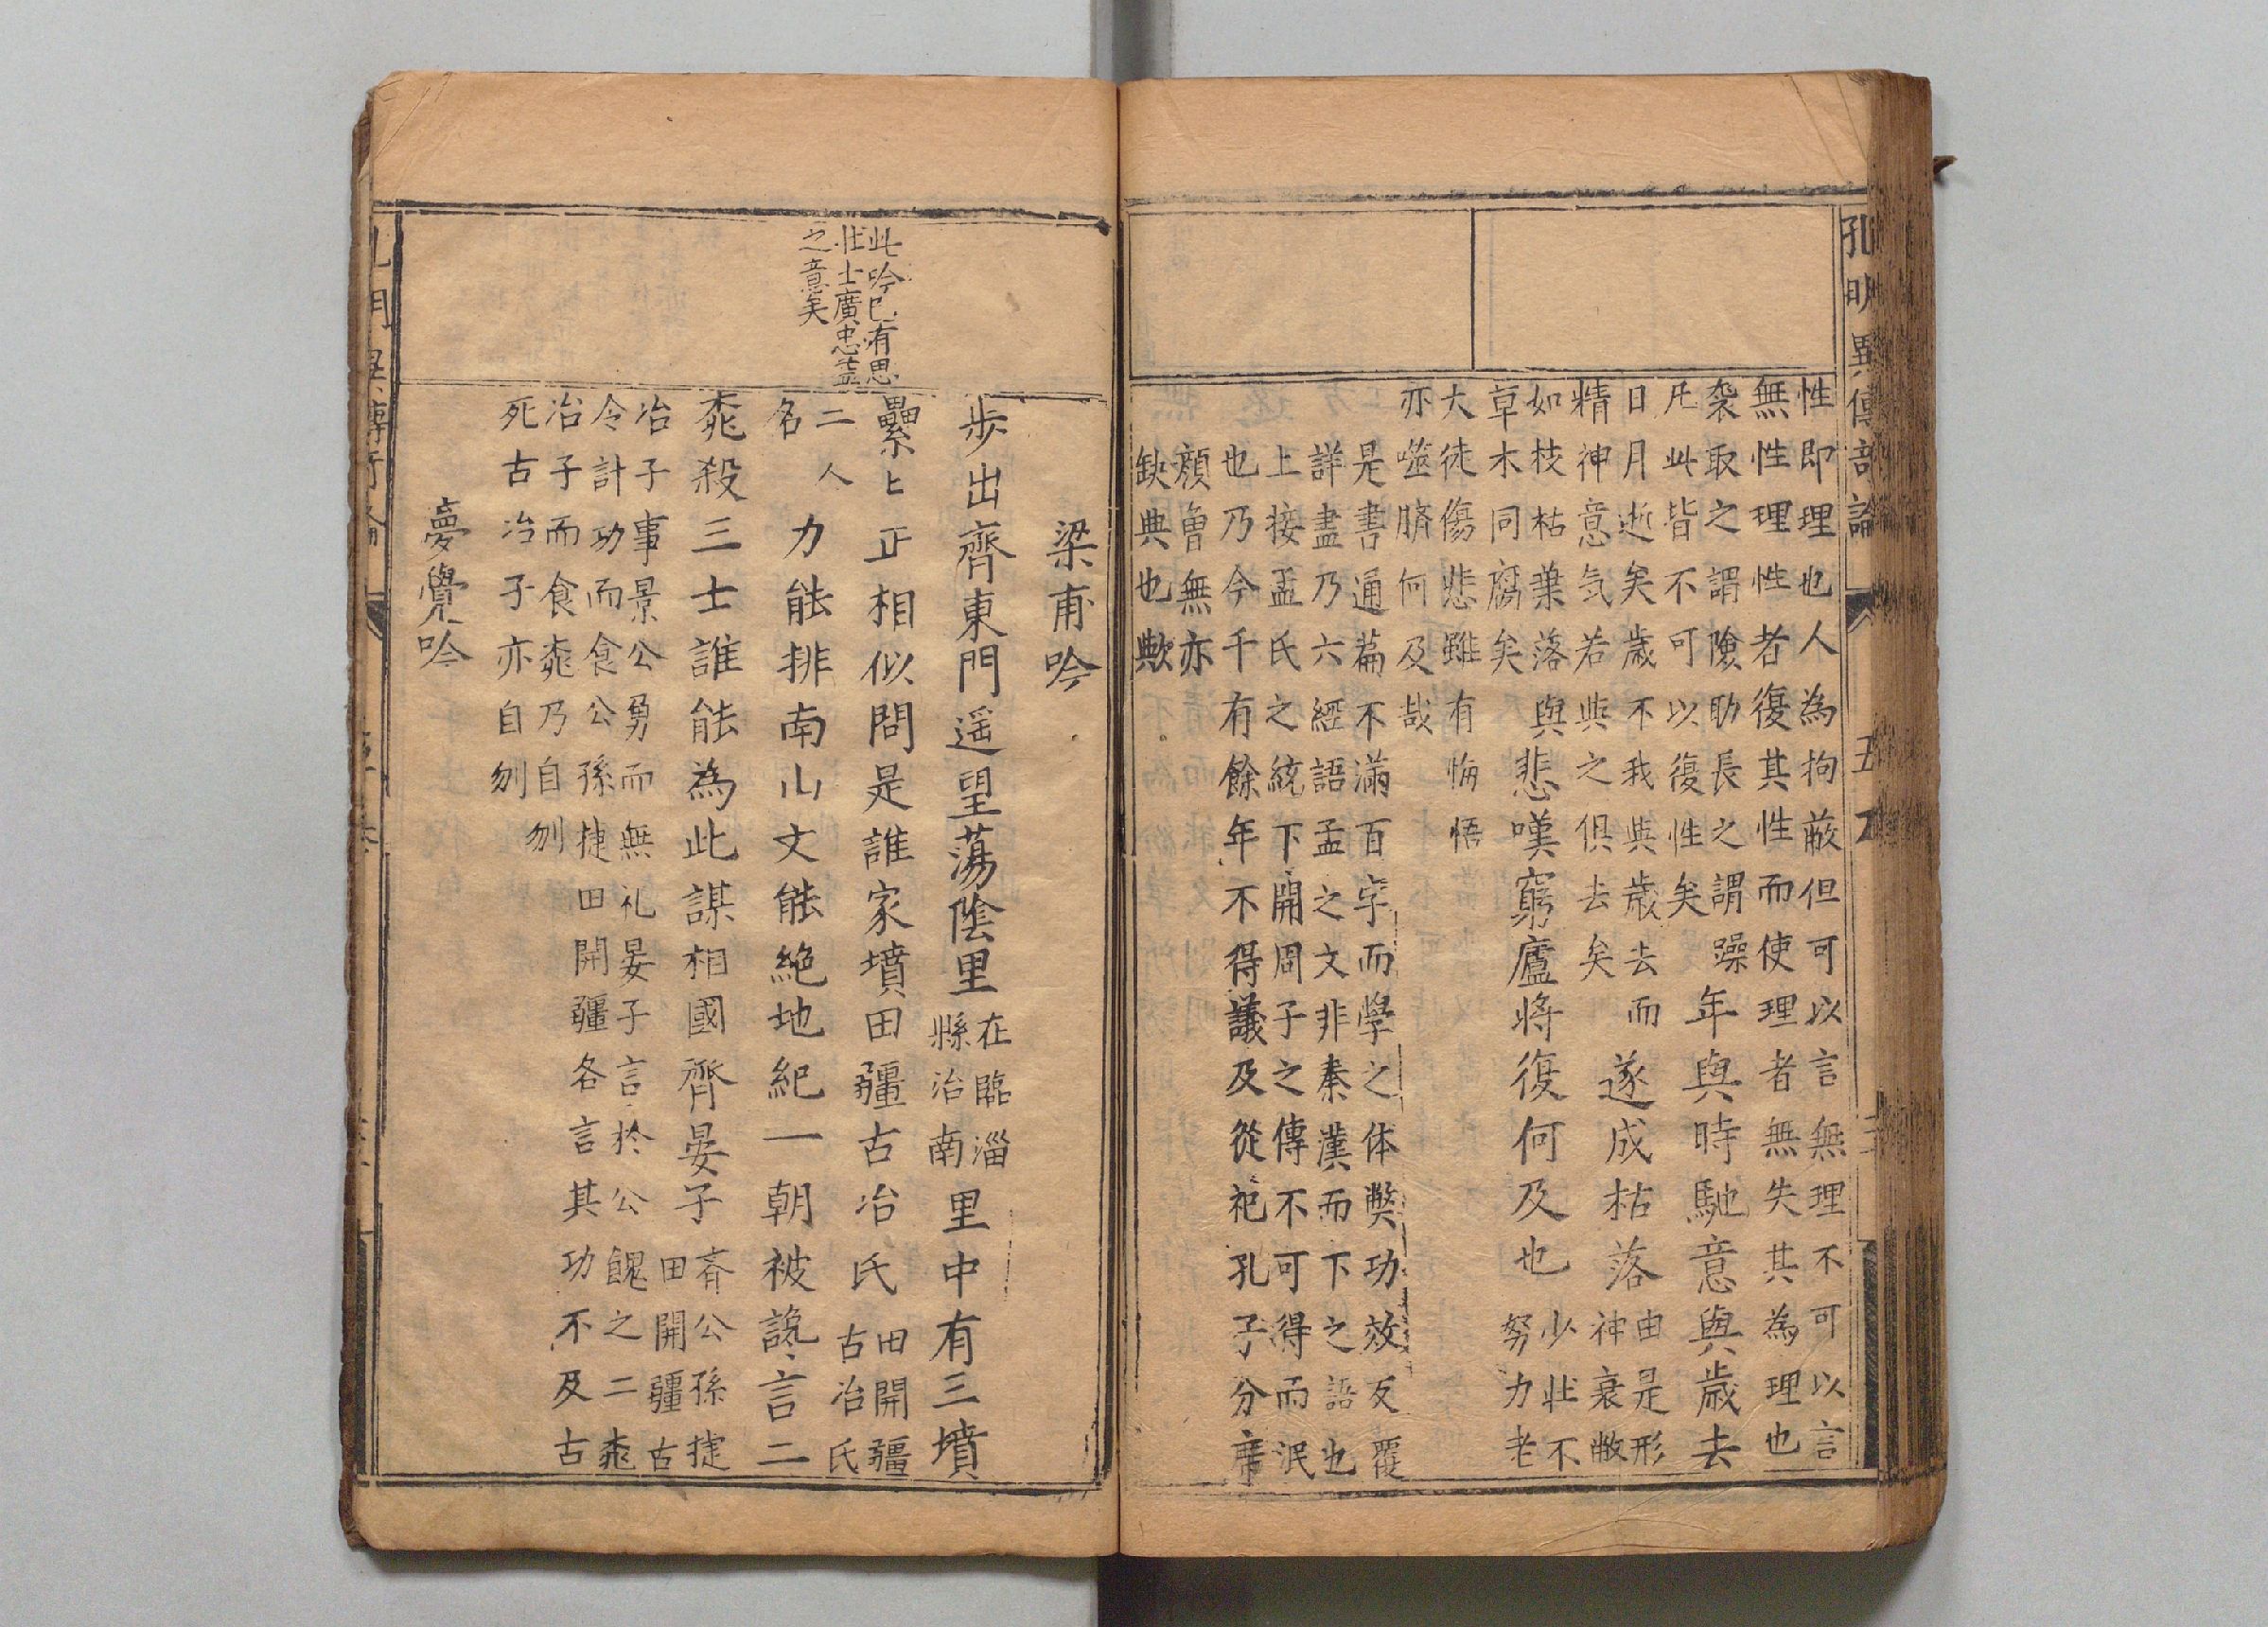 孔明異傳
性即理也人為拘蔽但可以言無理不可以言
無性理性者復其性而使理者無失其為理也
袭取之謂險助長之謂躁
凡此皆不可以復性矣
年與時馳意與歲去
日月逝矣歲不我與歲去而
精神意气若與之俱去矣
遂成枯落
由是形
神衰敝
如枝枯葉落與
草木同腐矣
悲嘆窮廬將復何及也
少壯不
努力老
大徒傷悲雖有悔悟
亦噬臍何及哉
是書通篇不滿百字而學之体獘功效反覆
詳盡乃六經語孟之文非秦漢而下之語也
上接孟氏之統下開周子之傳不可得而泯
也乃今千有餘年不得議及從祀孔子分席
顏曾無亦
缺典也歟
梁甫吟
步出齊東門遥望蕩隂里
在臨淄
縣治南
里中有三墳
此吟已有思
壯士廣忠益
之意矣
纍〻正相似問是誰家墳田疆古冶氏
田開疆
古冶氏
二人
名
力能排南山文能絶地紀一朝被讒言二
桃殺三士誰能為此謀相國齊晏子
斉公孫捷
田開疆古
冶子事景公勇而無礼晏子言於公餽之二桃
令計功而食公孫捷田開疆各言其功不及古
冶子而食桃乃自刎
死古冶子亦自刎
夢覺吟